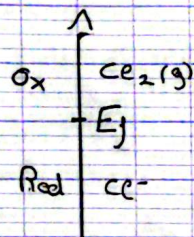 Ox Cl2(g)
Ej
Red Cl-